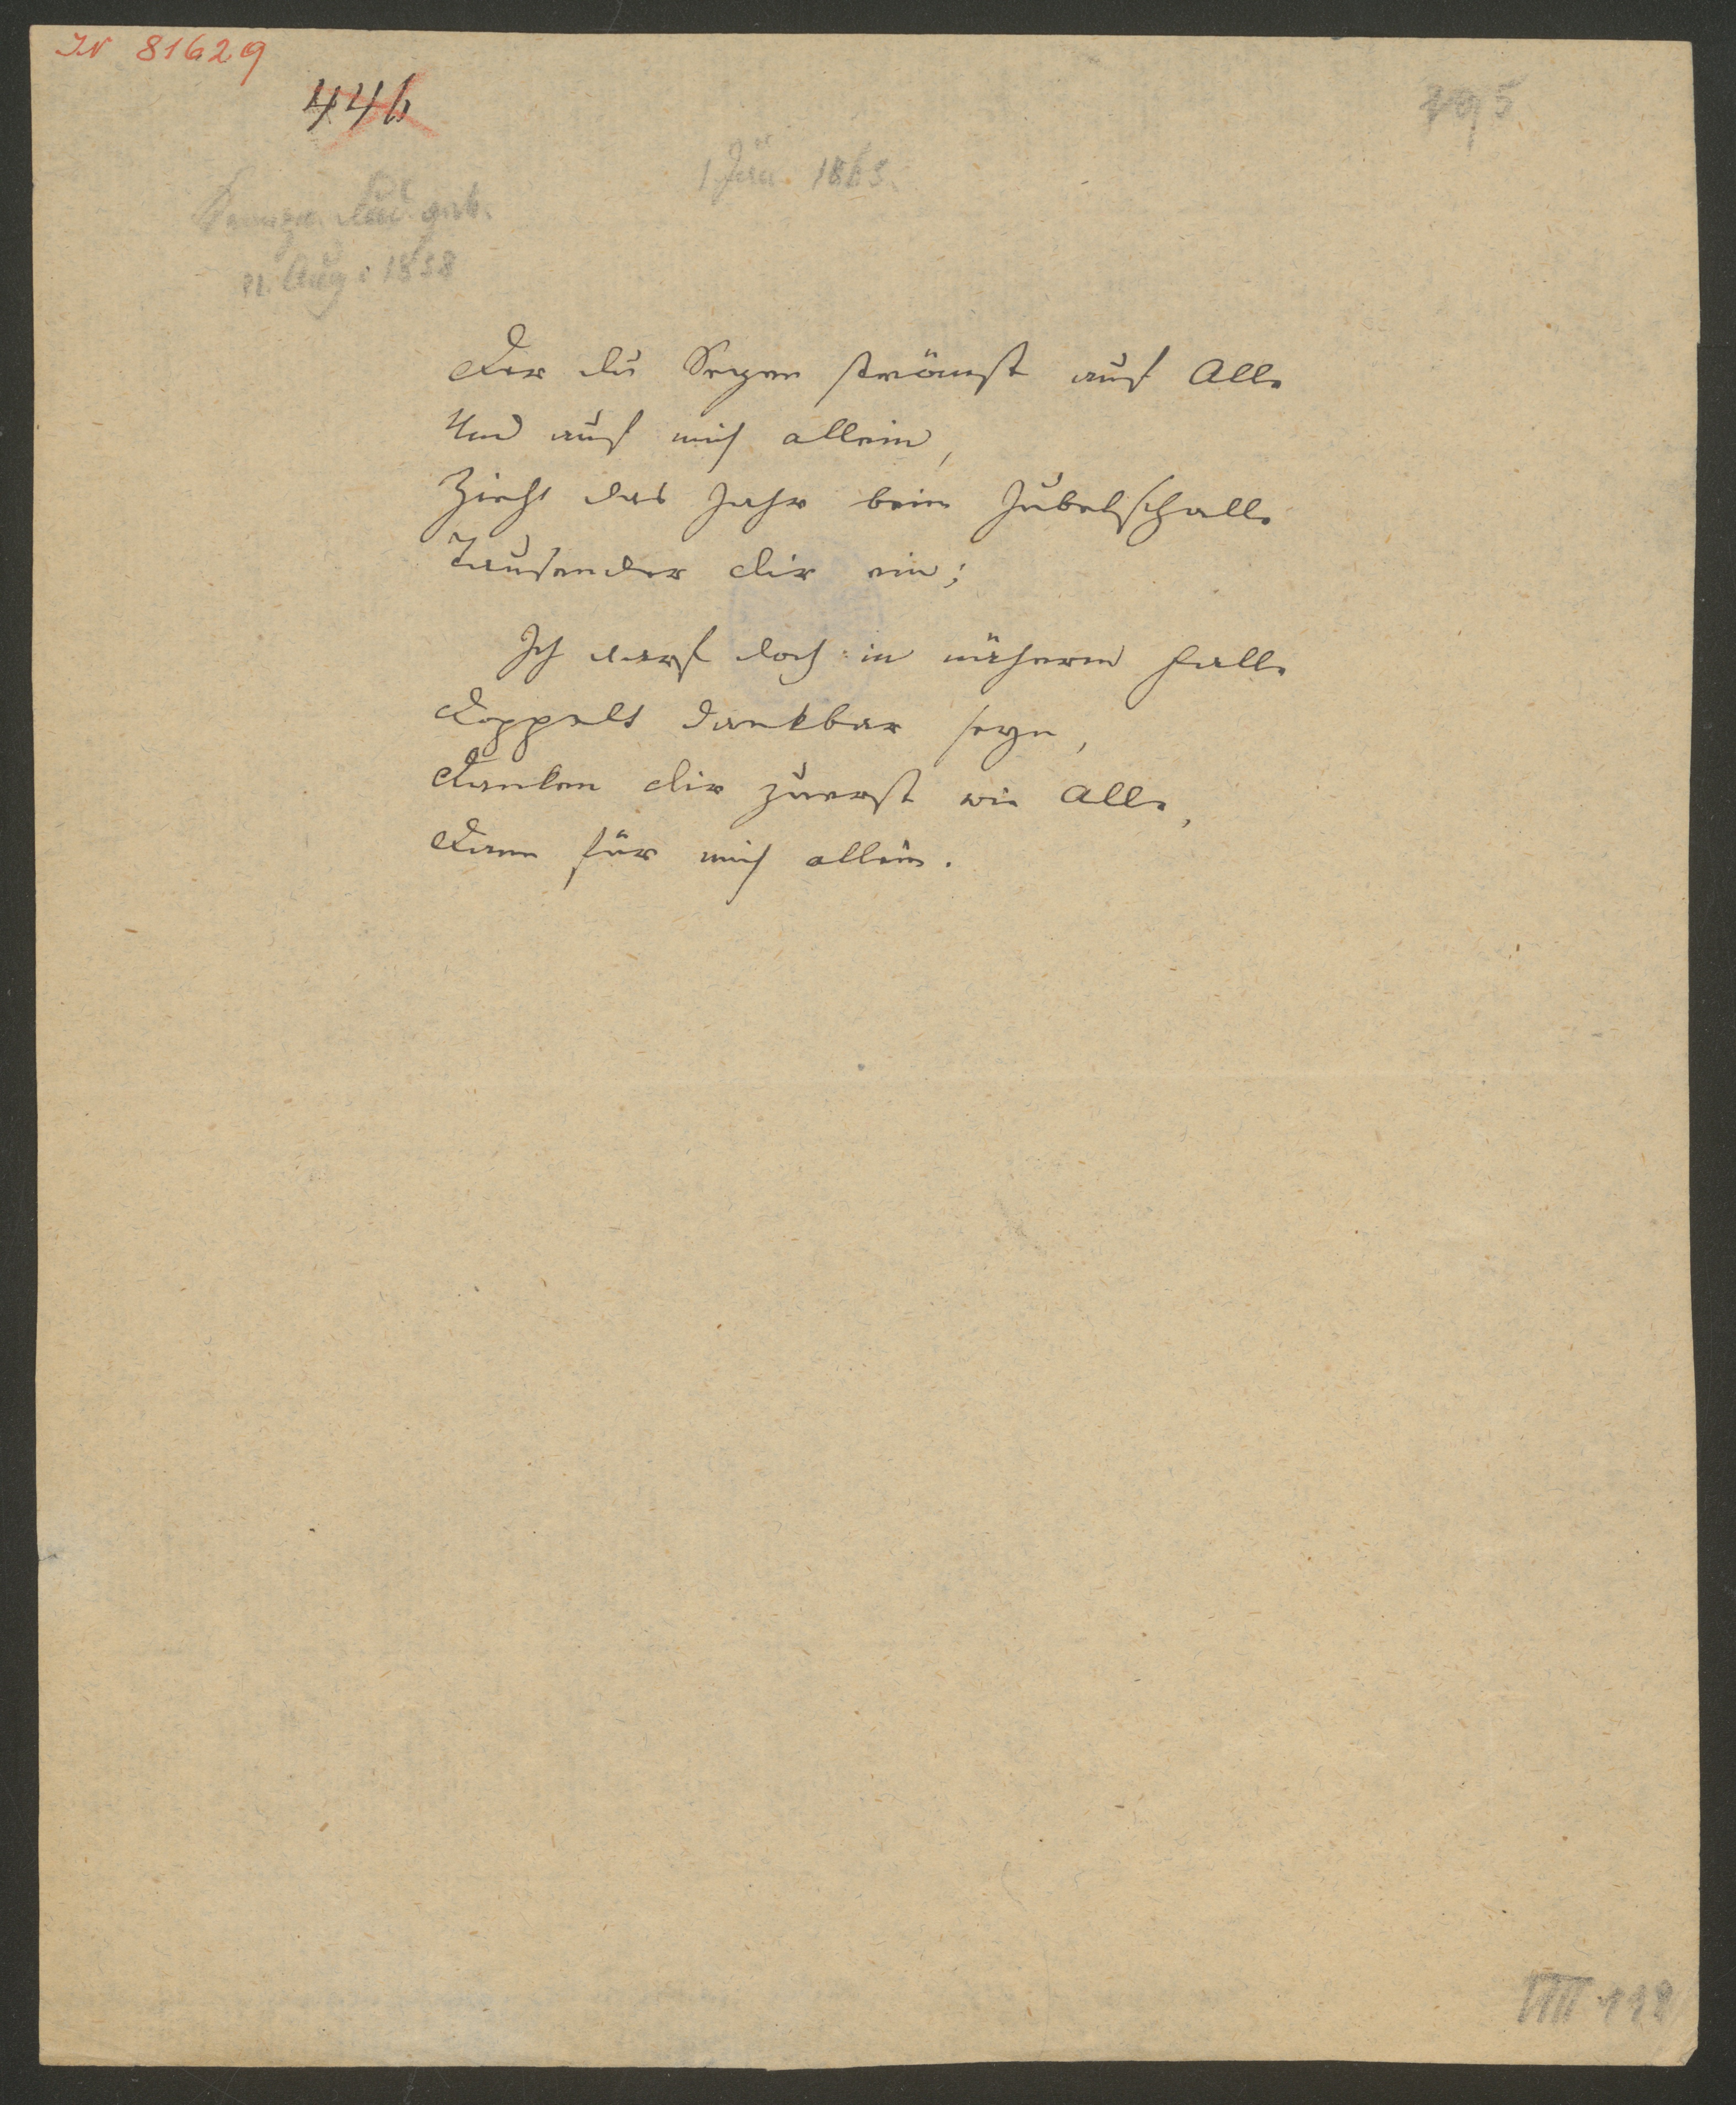 IN 81629
446
195
1 Jän. 1863.
Kronpr. Rud. geb.
21. Aug. 1858
Der du Segen strömst auf Alle
Und auf mich allein,
Zieht das Jahr beim Jubelschalle
Tausender dir ein;
Ich darf doch in näherm Falle
Doppelt dankbar seyn,
Danken dir zuerst wie Alle,
Dann für mich allein.
VIII 112